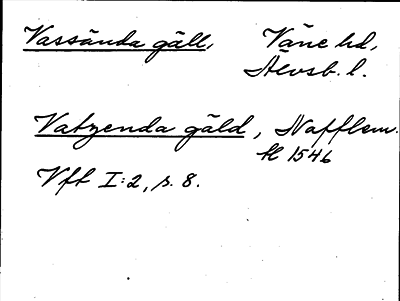 Vassända gäll, Väne hd,
Älvsb. l.
Vatzenda gäld, Nafflem.
tl 1546
Vft I:2, s. 8.